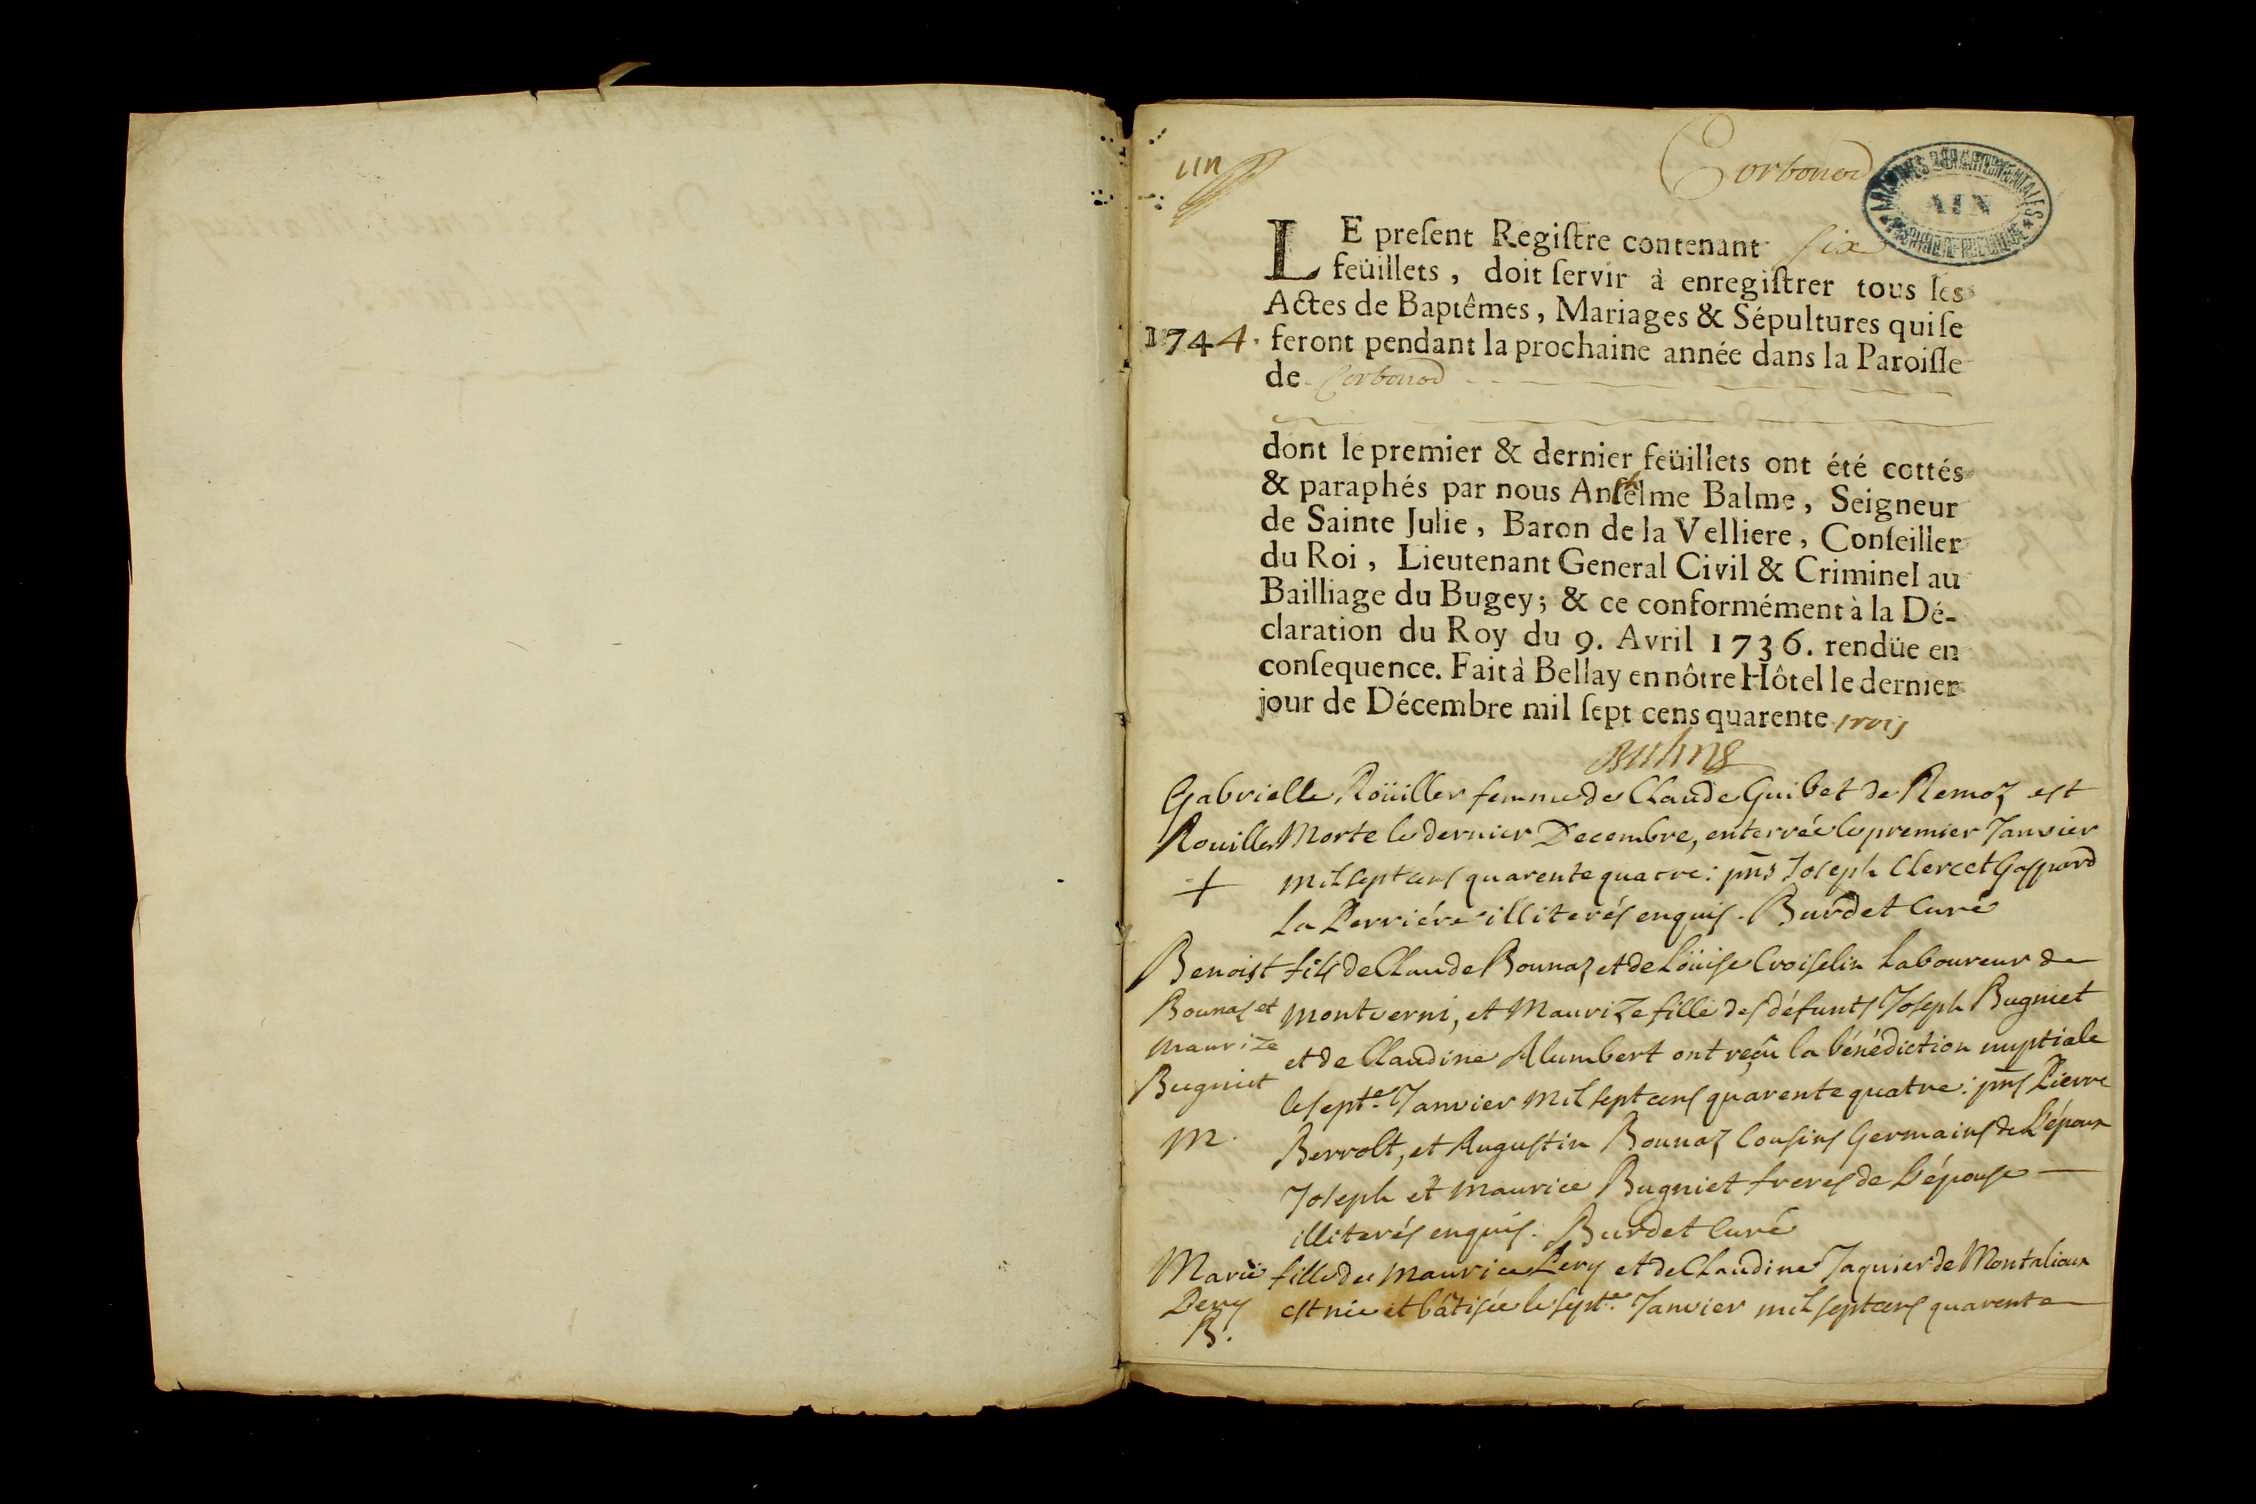 un
Corbonod
ARCHIVES DÉPARTEMENTALES
AIN
LE preſent Regiſtre contenant ſix
feüillets, doit ſervir à enregiſtrer tous les
Actes de Baptêmes, Mariages & Sépultures qui ſe
1744. feront pendant la prochaine année dans la Paroiſſe
de Corbonod
dont le premier & dernier feüillets ont été cottés
& paraphés par nous Anſelme Balme, Seigneur
de Sainte Julie, Baron de la Velliere, Conſeiller
du Roi, Lieutenant General Civil & Criminel au
Bailliage du Bugey; & ce conformément à la Dé-
claration du Roy du 9. Avril 1736. rendüe en
conſequence. Fait à Bellay en nôtre Hôtel le dernier
jour de Décembre mil ſept cens quarente trois
Gabrielle Roüiller femme de Claude Guibet de Remoz est
Rouiller Morte le dernier Decembre, enterrée le premier Janvier
+ mil sept cens quarente quatre: pns Joseph Clerc et Gaspard
La Perriére illiterés enquis. Burdet Curé
Benoist fils de Claude Bounaz et de Loüise Croiselin Laboureur de
Bounaz et Montverni, et Maurize fille des défunts Joseph Bugniet
Maurize et de Claudine Alumbert ont reçû la bénédiction nuptiale
Bugniet le septe. Janvier mil sept cens quarente quatre: pns Pierre
M. Berrolt, et Augustin Bounaz Cousins Germains de L'époux
Joseph et Maurice Bugniet freres de L'épouse
illiterés enquis. Burdet Curé
Marie fille de Maurice Pery et de Claudine Jaquier de Montalioux
Pery est née et bâtisée le septe. Janvier mil sept cens quarente
B.